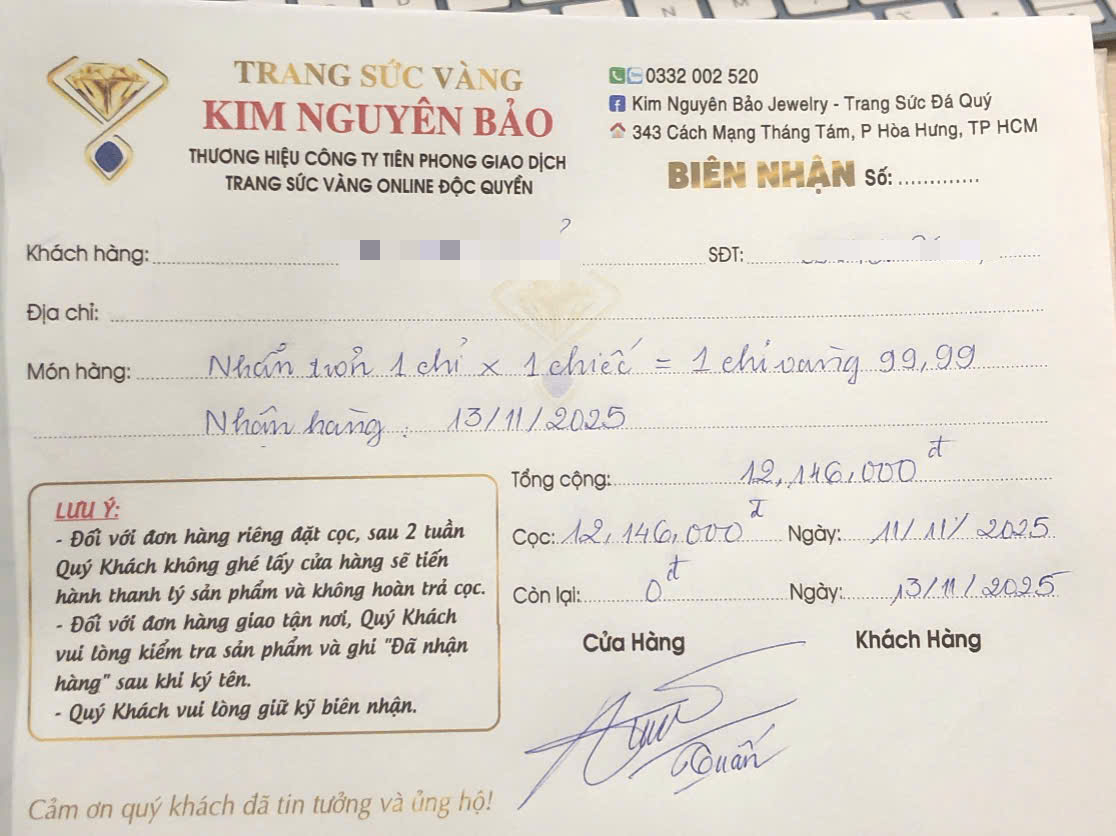 TRANG SỨC VÀNG
KIM NGUYÊN BẢO
THƯƠNG HIỆU CÔNG TY TIÊN PHONG GIAO DỊCH
TRANG SỨC VÀNG ONLINE ĐỘC QUYỀN
0332 002 520
Kim Nguyên Bảo Jewelry - Trang Sức Đá Quý
343 Cách Mạng Tháng Tám, P Hòa Hưng, TP HCM
BIÊN NHẬN Số:
Khách hàng: SĐT:
Địa chỉ:
Món hàng: Nhẫn trơn 1 chỉ x 1 chiếc = 1 chỉ vàng 99,99
Nhận hàng: 13/11/2025
Tổng cộng: 12,146,000 đ
Cọc: 12,146,000 đ Ngày: 11/11/2025
Còn lại: 0 đ Ngày: 13/11/2025
LƯU Ý:
- Đối với đơn hàng riêng đặt cọc, sau 2 tuần
Quý Khách không ghé lấy cửa hàng sẽ tiến
hành thanh lý sản phẩm và không hoàn trả cọc.
- Đối với đơn hàng giao tận nơi, Quý Khách
vui lòng kiểm tra sản phẩm và ghi "Đã nhận
hàng" sau khi ký tên.
- Quý Khách vui lòng giữ kỹ biên nhận.
Cửa Hàng Khách Hàng
Quấn
Cảm ơn quý khách đã tin tưởng và ủng hộ!